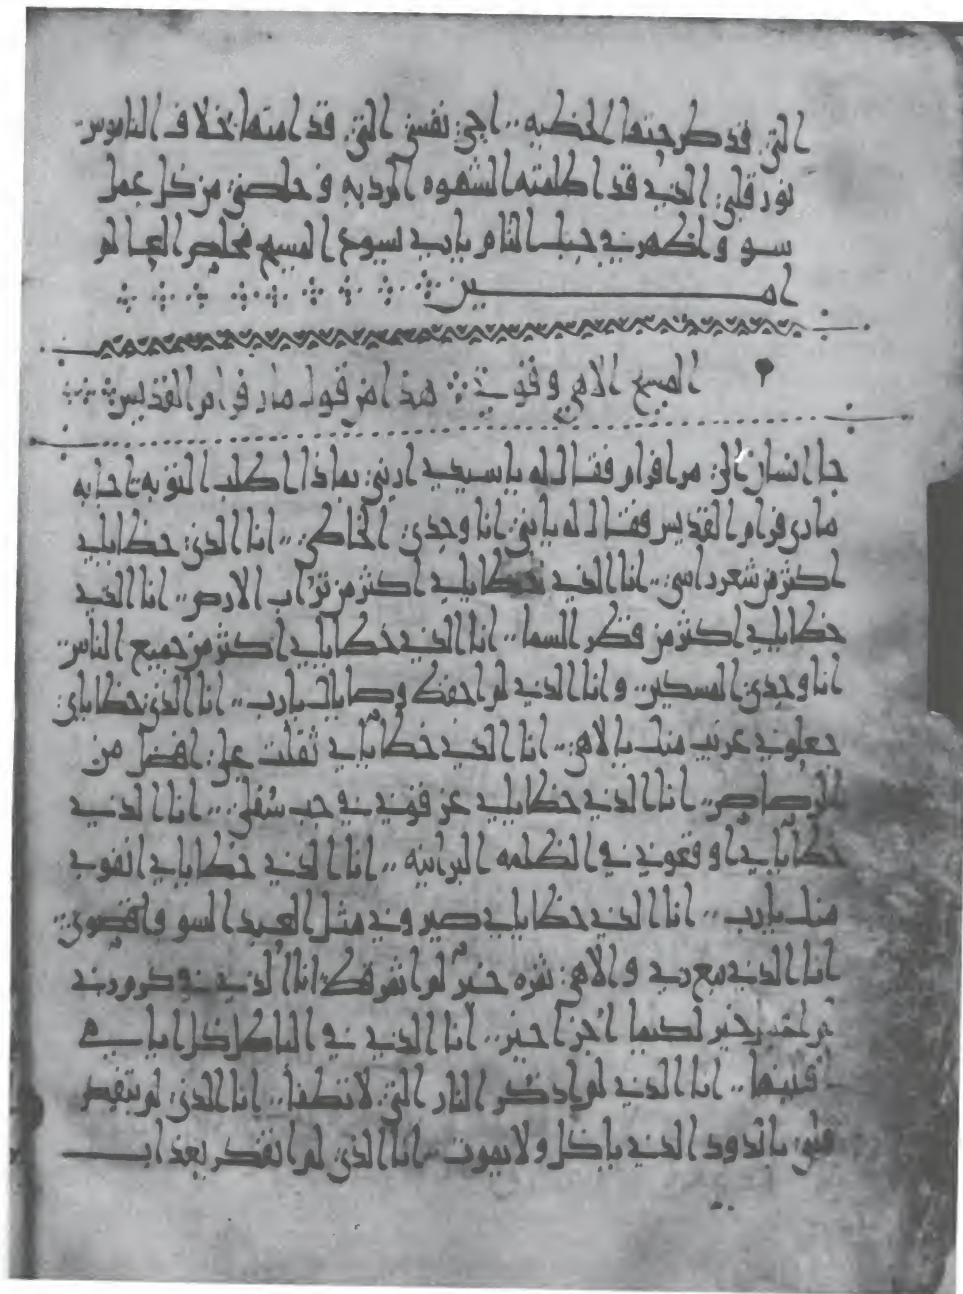 التي قد طرحتها الخطيه احي نفسي التي قد امتها بخلاف الناموس
نور قلبي الذي قد اظلمته الشهوه الرديه وخلصني من كل عمل
سو واظهرني حبك التام يا رب يسوع المسيح مخلص العالم
امين
المسيح الاهي وقوتي هذا من قول مار فرام القديس
جا انسان الي مر افرام فقال له يا سيدي اريني بماذا اطلب التوبه اجابه
ماري فرام القديس فقال له يا بني انا وحدي الخاطي انا الذي خطاياي
اكثر من شعر راسي انا الذي خطاياي اكثر من تراب الارض انا الذي
خطاياي اكثر من قطر السما انا الذي خطاياي اكثر من جميع الناس
انا وحدي المسكين وانا الذي لم احفظ وصاياك يا رب انا الذي خطاياي
جعلوني غريب منك يا الاهي انا الذي خطاياي ثقلت علي افضل من
الرصاص انا الذي خطاياي غرقوني في جب سفلي انا الذي
خطاياي اوقعوني في الظلمه البرانيه انا الذي خطاياي انفوني
منك يا رب انا الذي خطاياي صيروني مثل العبد السو واقصوني
انا الذي مع ربي والاهي ثمره خير لم اثمر قط انا الذي في كرم ربي
لم اجتهد لكيما اجرا خير انا الذي في الباطل كل ايامي
افنيتها انا الذي لم اذكر النار التي لا تطفا انا الذي لم يتفكر
قلبي بالدود الذي ياكل ولا يموت انا الذي لم اتفكر بعذاب